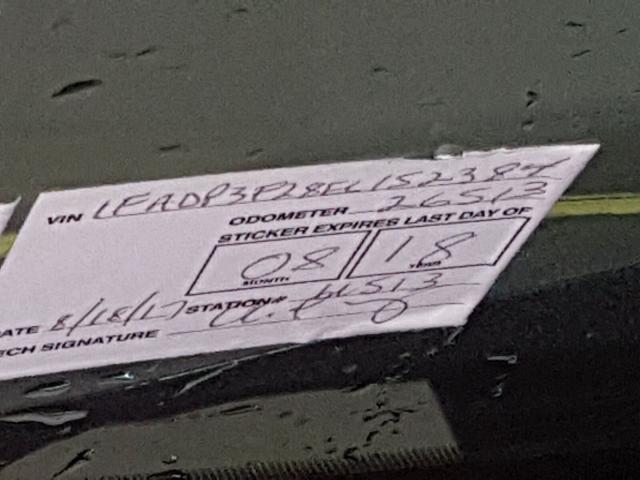 VIN 1FADP3F28EL152384
ODOMETER 26513
STICKER EXPIRES LAST DAY OF
08 18
MONTH YEAR
ATE 8/18/17 STATION#
ECH SIGNATURE